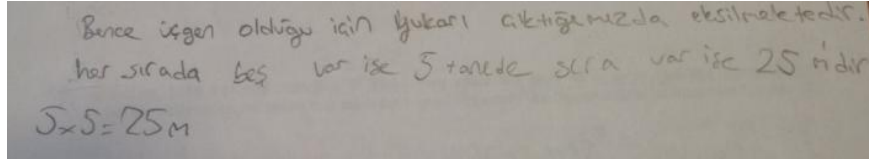 Bence üçgen olduğu için yukarı çıktığımızda eksilmektedir.
her sırada beş var ise 5 tanede sıra var ise 25 m'dir
5x5=25m